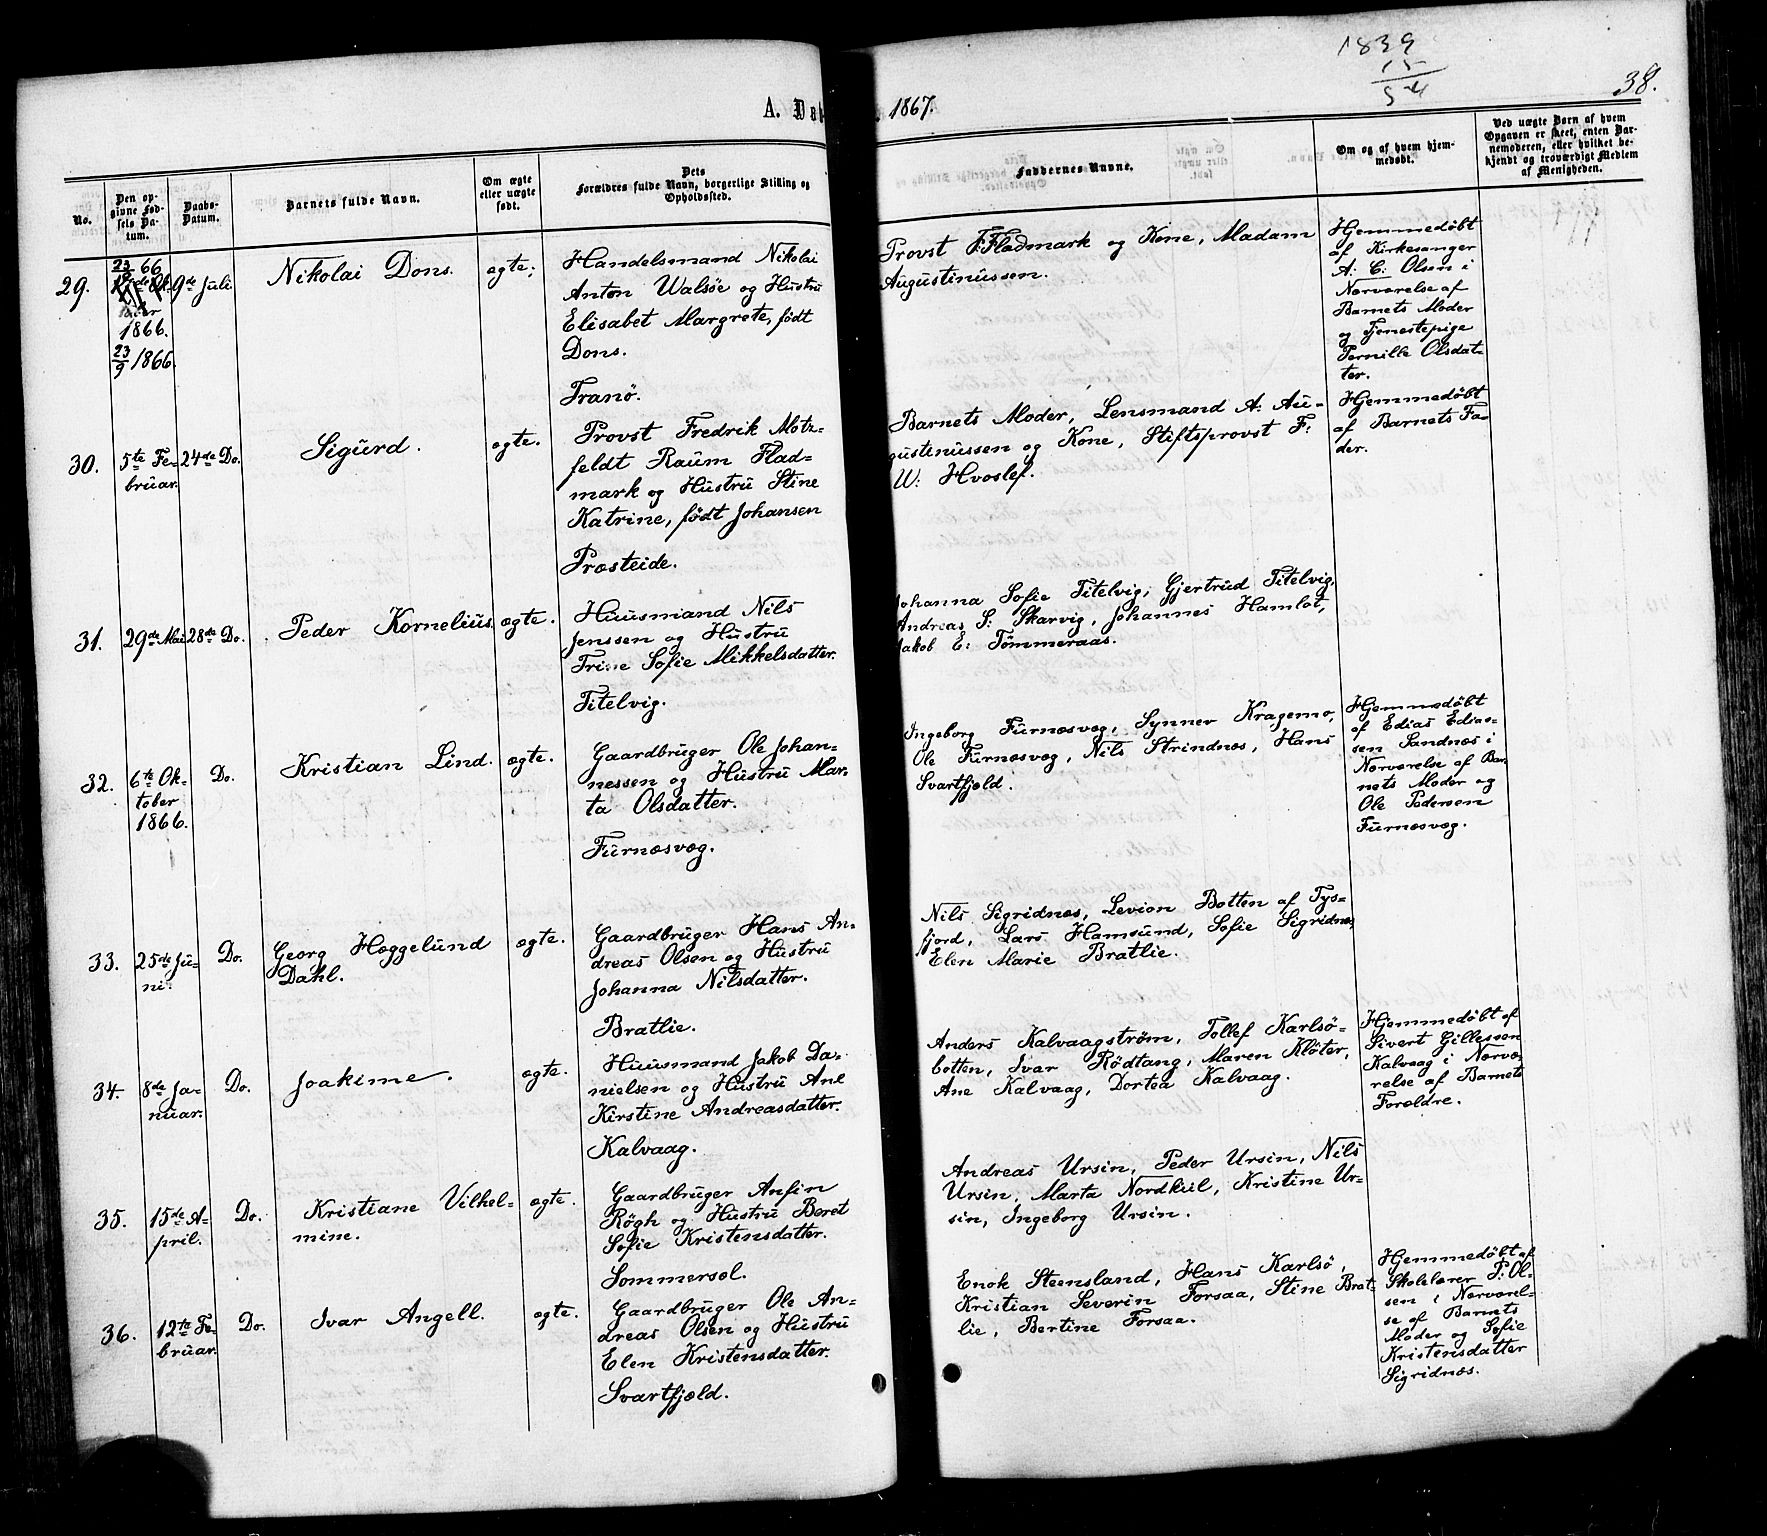 1839
15
54
38.
A. Døb
1867.
No.
Den op-
givne Fød-
sels Da-
tum.
Daabs-
Datum.
Barnets fulde Navn.
Om ægte
eller uægte
født.
Dets
Forældres fulde Navn, borgerlige Stilling og
Opholdssted.
Faddernes Navne.
Om og af hvem hjem-
medøbt.
Ved uægte Børn af hvem
Opgaven er skeet, enten Bar-
nemoderen, eller hvilket be-
kjendt og troværdigt Medlem
af Menigheden.
29.
1866.
23/9 1866.
9de Juli
Nikolai Dons.
ægte;
Handelsmand Nikolai
Anton Walsøe og Hustru
Elisabet Margrete, født
Dons.
Tranö.
Provst F. Fladmark og Kone, Madam
Augustinussen.
Hjemmedøbt
af Kirkesanger
A: C: Olsen i
Nærværelse af
Barnets Moder
og Tjenestepige
Pernille Olsdat-
ter.
30.
5te Fe-
bruar.
24de Do.
Sigurd.
ægte.
Provst Fredrik Motz-
feldt Raum Flad-
mark og Hustru Stine
Katrine, født Johansen
Præsteide.
Barnets Moder, Lensmand A: Au-
gustinussen og Kone, Stiftsprovst F:
W: Hvoslef.
Hjemmedøbt
af Barnets Fa-
der.
31.
29de Mai
28de Do.
Peder Kornelius.
ægte.
Huusmand Nils
Jenssen og Hustru
Trine Sofie Mikkelsdatter.
Titelvig.
Johanna Sofie Titelvig, Gjertrud Titelvig,
Andreas S: Skarvig, Johannes Hamlot,
Jakob E: Tömmeraas.
32.
6te Ok-
tober
1866.
Do.
Kristian Lind.
ægte.
Gaardbruger Ole Johan-
nessen og Hustru Mar-
ta Olsdatter.
Furnæsvæg.
Ingeborg Furnæsvæg, Synnev Kragemo,
Ole Furnæsvæg, Nils Strindnæs, Hans
Svartfjeld.
Hjemmedøbt
af Edias Edias-
sen Sandnæs i
Nærværelse af Bar-
nets Moder og
Ole Pedersen
Furnæsvæg.
33.
25de Ju-
ni.
Do.
Georg Hæggelund
Dahl.
ægte.
Gaardbruger Hans An-
dreas Olsen og Hustru
Johanna Nilsdatter.
Bratlie.
Nils Sigridnæs, Levion Botten af Tys-
fjord, Lars Hamsund, Sofie Sigridnæs,
Elen Marie Bratlie.
34.
8de Ja-
nuar.
Do.
Joakime.
ægte.
Huusmand Jakob Da-
nielsen og Hustru Ane
Kirstine Andreasdatter.
Kalvaag.
Anders Kalvaagström, Tollef Karlsö-
botten, Ivar Rödtang, Maren Klöter,
Ane Kalvaag, Dortea Kalvaag.
Hjemmedøbt af
Sivert Gillessen
Kalvaag i Nærvæ-
relse af Barnets
Forældre.
35.
15de A-
pril.
Do.
Kristiane Vilhel-
mine.
ægte.
Gaardbruger Anfin
Røgh og Hustru Beret
Sofie Kristensdatter.
Sommersel.
Andreas Ursin, Peder Ursin, Nils
Ursin, Marta Nordkiil, Kristine Ur-
sin, Ingeborg Ursin.
36.
12te Fe-
bruar.
Do.
Ivar Angell.
ægte.
Gaardbruger Ole An-
dreas Olsen og Hustru
Elen Kristensdatter.
Svartfjæld.
Enok Steensland, Hans Karlsö,
Kristian Severin Forsaa, Stine Brat-
lie, Bertine Forsaa.
Hjemmedøbt af
Skolelærer P: Ol-
sen i Nærværel-
se af Barnets
Moder og Sofie
Kristensdatter
Sigridnæs.